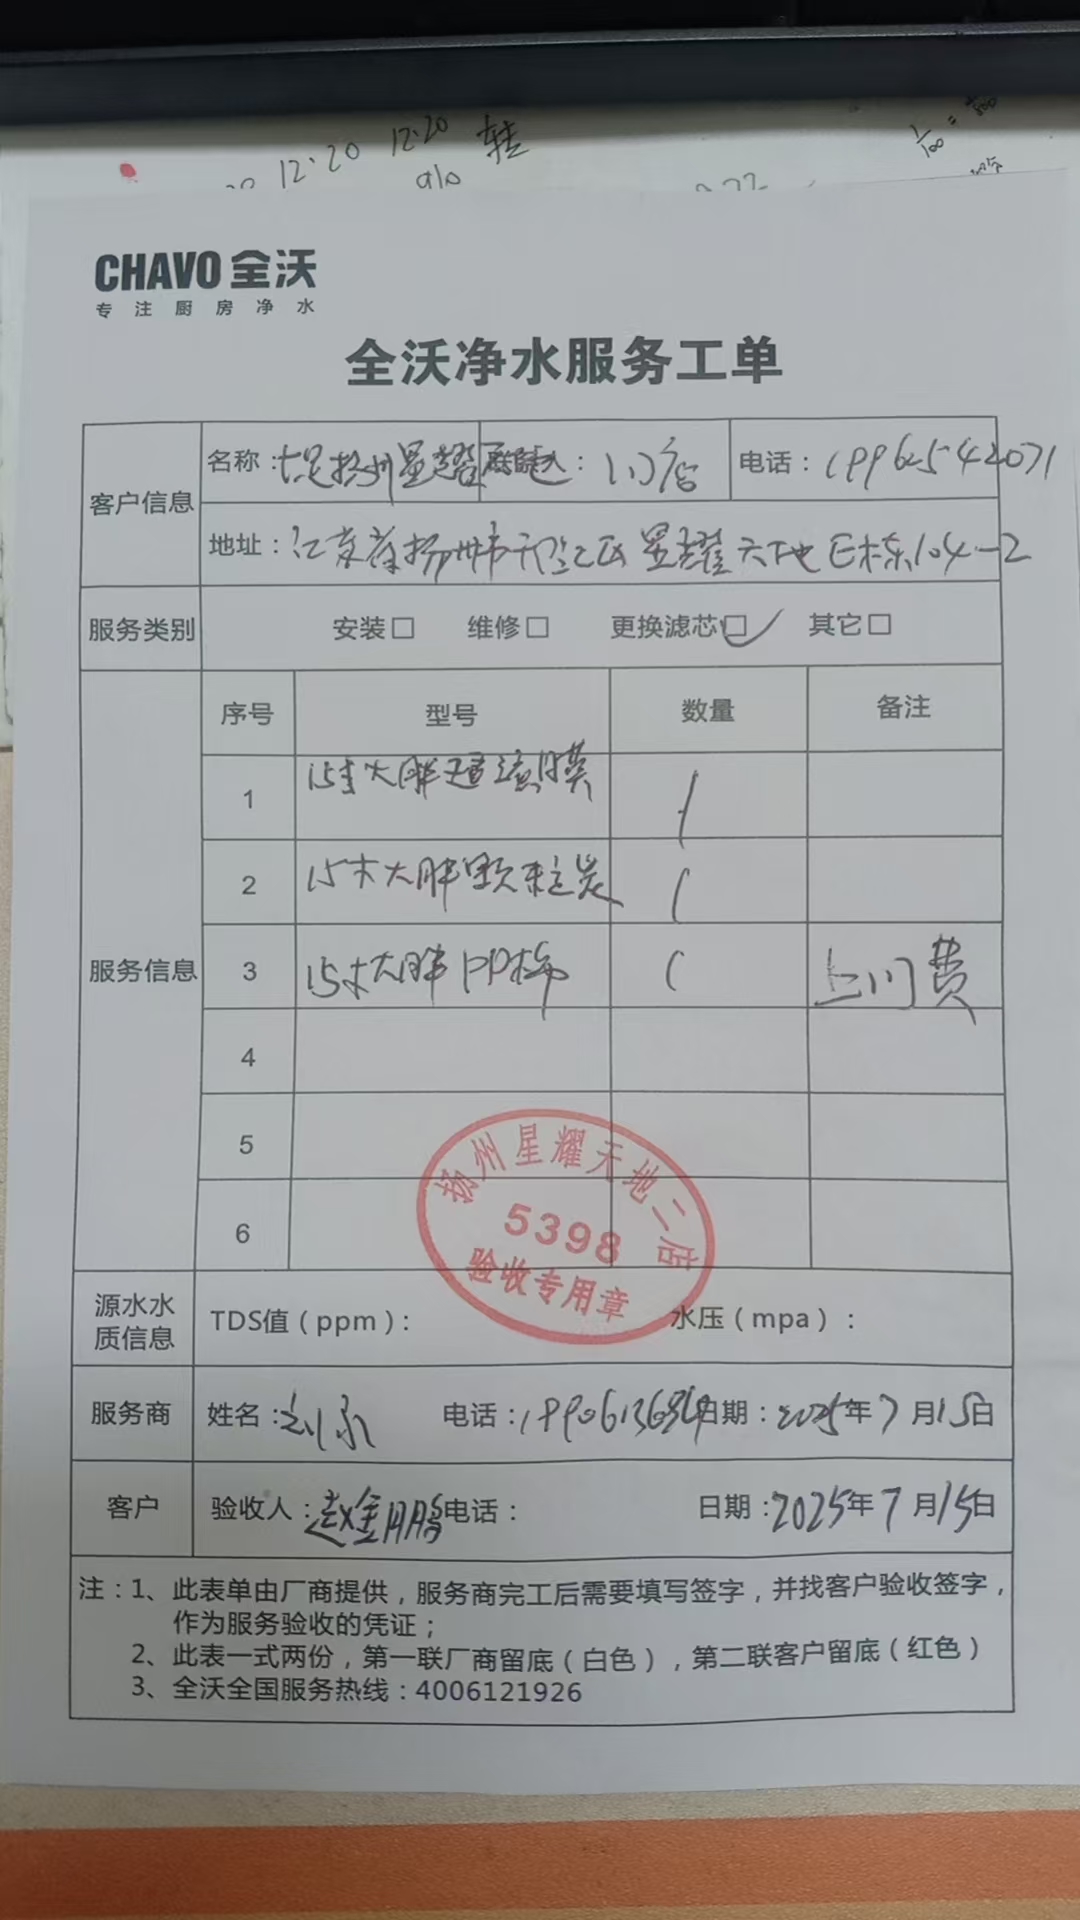 12.20 12.20 转
a10
1/100 =
CHAVO 全沃
专注厨房净水
全沃净水服务工单
客户信息 名称： 扬州星耀 联系人： 门店 电话：19965542071
地址：江苏省扬州市邗江区星耀天地E栋104-2
服务类别 安装□ 维修□ 更换滤芯□✓ 其它□
序号 型号 数量 备注
1 15寸大胖超滤膜 1
2 15寸大胖颗粒炭 1
服务信息 3 15寸大胖PP棉 1 上门费
4
5
6
扬州星耀天地二店
5398
验收专用章
源水水质信息 TDS值（ppm）： 水压（mpa）：
服务商 姓名：刘永 电话： 日期：2025年7月15日
客户 验收人：赵金鹏 电话： 日期：2025年7月15日
注：1、此表单由厂商提供，服务商完工后需要填写签字，并找客户验收签字，
作为服务验收的凭证；
2、此表一式两份，第一联厂商留底（白色），第二联客户留底（红色）
3、全沃全国服务热线：4006121926